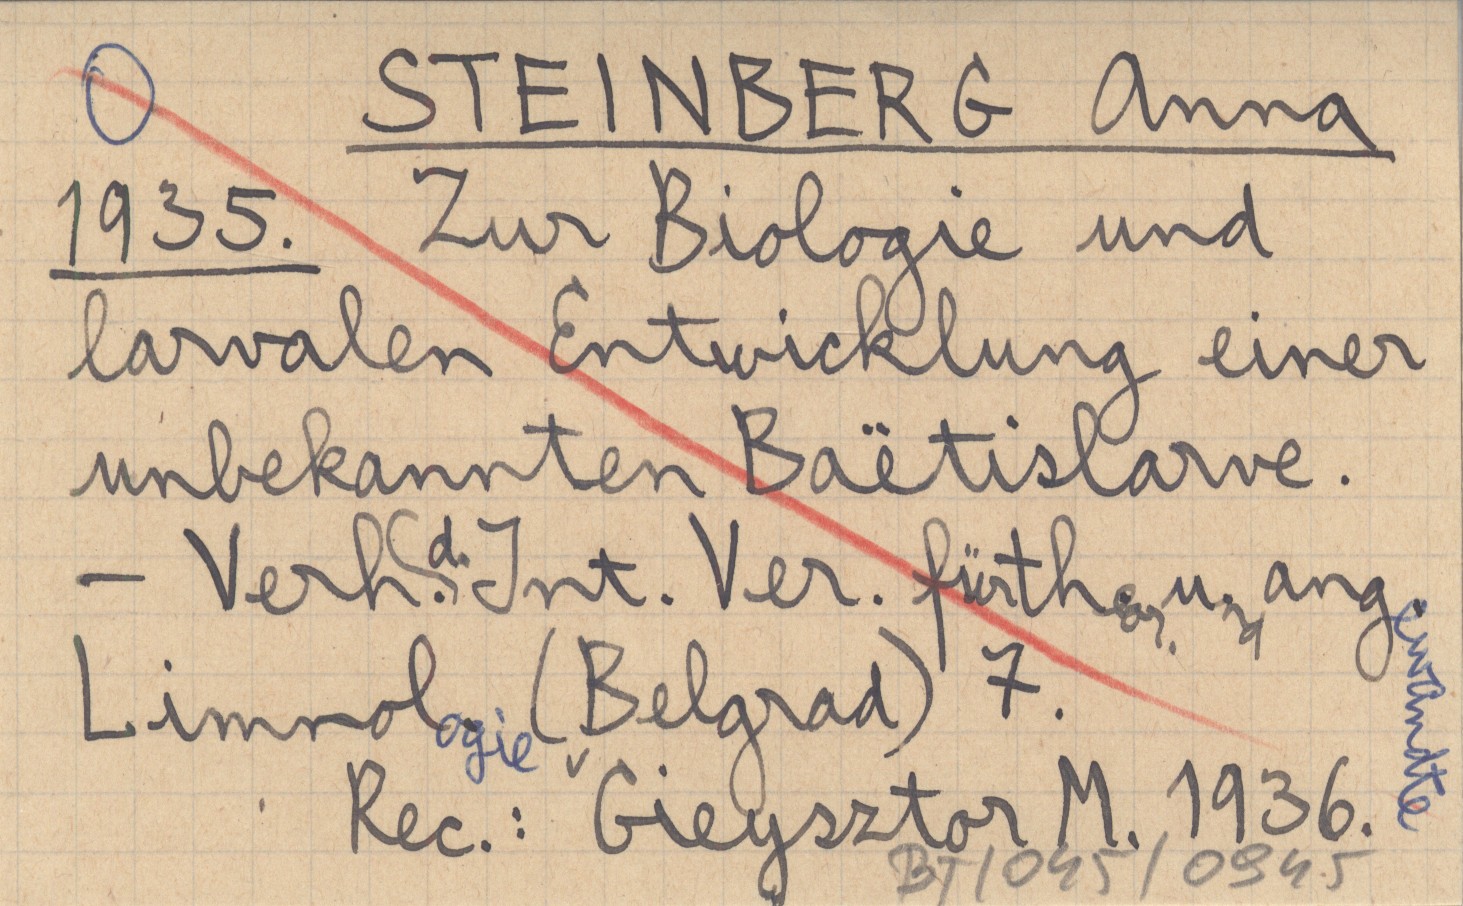 STEINBERG Anna
1935. Zur Biologie und
larvalen Entwicklung einer
unbekannten Baëtislarve.
- Verh. d. Int. Ver. für th. u. ang.
Limnologie (Belgrad) 7.
Rec.: Gieysztor M. 1936.
BT/045/0945